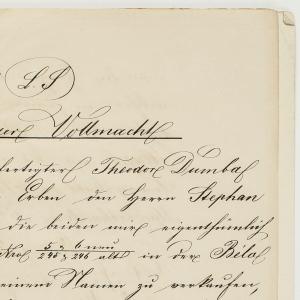 L.S
Vollmacht
fertigter Theodor Dumba
Erben den Herrn Stephan
die beiden mir eigenthümlich
No 5 & 6 neu in der Bila
245 & 246 alt
meinem Namen zu verkaufen,